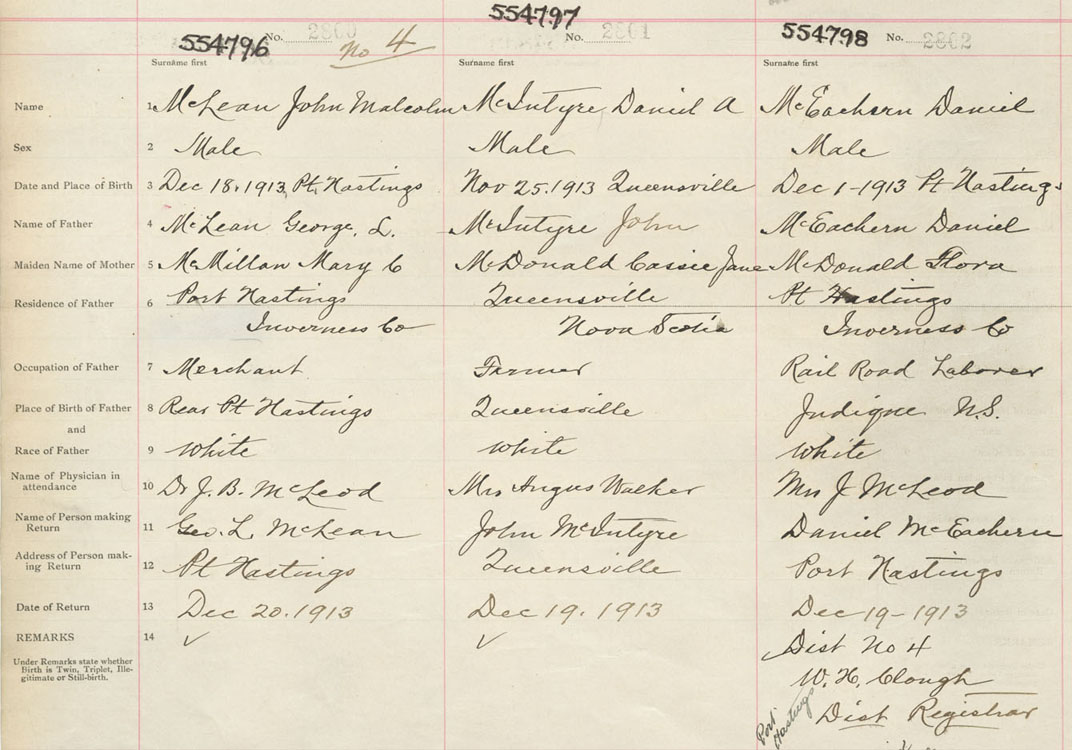 554796 No. 2860 No 4 554797 No. 2861 554798 No. 2862
Surname first Surname first Surname first
Name 1 McLean John Malcolm McIntyre Daniel A McEachern Daniel
Sex 2 Male Male Male
Date and Place of Birth 3 Dec 18. 1913 Pt. Hastings Nov 25. 1913 Queensville Dec 1-1913 Pt Hastings
Name of Father 4 McLean George. L. McIntyre John McEachern Daniel
Maiden Name of Mother 5 McMillan Mary C McDonald Cassie Jane McDonald Flora
Residence of Father 6 Port Hastings Queensville Pt Hastings
Inverness Co Nova Scotia Inverness Co
Occupation of Father 7 Merchant Farmer Rail Road Laborer
Place of Birth of Father 8 Rear Pt Hastings Queensville Judique N.S.
and
Race of Father 9 White White White
Name of Physician in
attendance 10 Dr J. B. McLeod Mrs Angus Walker Mrs J McLeod
Name of Person making
Return 11 Geo. L. McLean John McIntyre Daniel McEachern
Address of Person mak-
ing Return 12 Pt Hastings Queensville Port Hastings
Date of Return 13 Dec 20. 1913 Dec 19. 1913 Dec 19-1913
REMARKS 14 ✓ ✓ Dist No 4
Under Remarks state whether
Birth is Twin, Triplet, Ille-
gitimate or Still-birth.
W. H. Clough
Dist Registrar
Port
Hastings